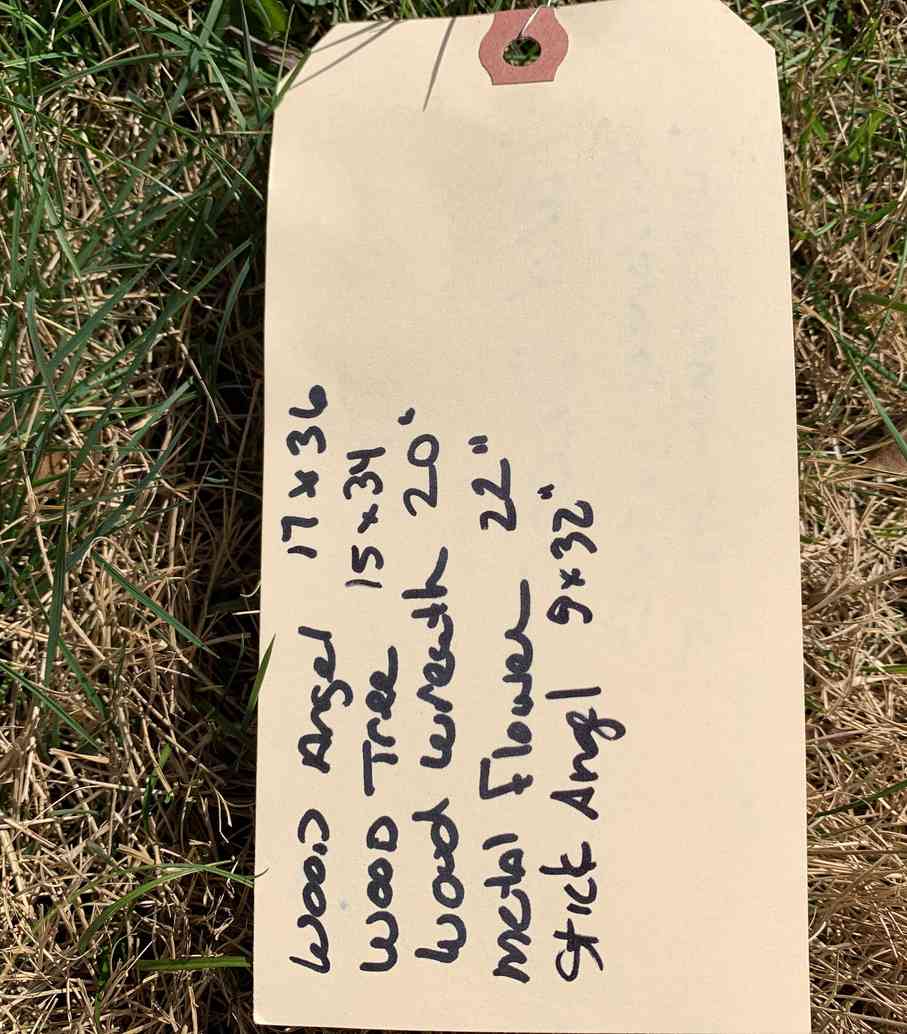 WOOD Angel 17 x 36
WOOD Tree 15 x 34
Wood wreath 20'
metal Flower 22"
Stick Angl 9 x 32"